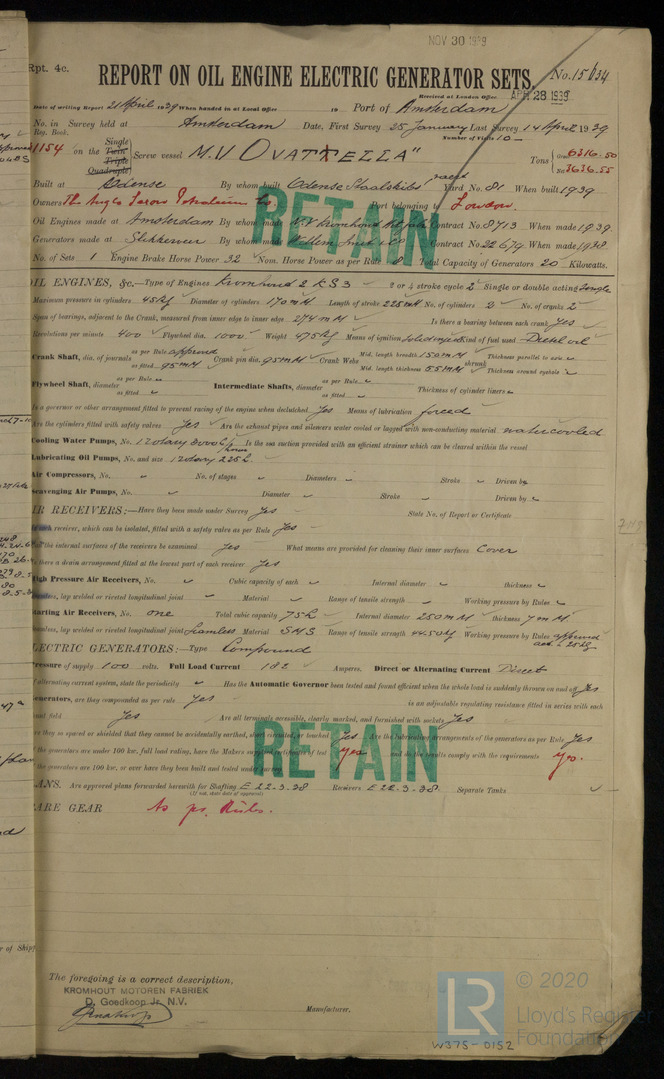 NOV 30 1939
Rpt. 4c.
REPORT ON OIL ENGINE ELECTRIC GENERATOR SETS. No. 15634
Received at London Office APR 28 1939
Date of writing Report 21 April 1939 When handed in at Local Office 19 Port of Amsterdam
No. in Survey held at Amsterdam Date, First Survey 25 January Last Survey 14 April 1939
Reg. Book. Number of Visits 10
1154 on the Single Twin Triple Quadruple Screw vessel M.V. "OVATELLA" Tons Gross 6316.50 Net 3636.55
Built at Odense By whom built Odense Staalskibs Yard No. 81 When built 1939
Owners The Anglo Saxon Petroleum Co. Port belonging to London.
Oil Engines made at Amsterdam By whom made Contract No. 8713 When made 1939.
Generators made at Slikkerveer By whom made Willem Smit & Co Contract No. 22679 When made 1938
No. of Sets 1 Engine Brake Horse Power 32 Nom. Horse Power as per Rule 8 Total Capacity of Generators 20 Kilowatts.
RETAIN
OIL ENGINES, &c.—Type of Engines Kromhout 2 KS3 2 or 4 stroke cycle 2 Single or double acting Single
Maximum pressure in cylinders 45 kg Diameter of cylinders 170 mM Length of stroke 225 mM No. of cylinders 2 No. of cranks 2
Span of bearings, adjacent to the Crank, measured from inner edge to inner edge 274 mM Is there a bearing between each crank Yes
Revolutions per minute 400 Flywheel dia. 1000 Weight 475 kg Means of ignition Kind of fuel used Diesel oil
Crank Shaft, dia. of journals as per Rule approved as fitted 95 mM Crank pin dia. 95 mM Crank Webs Mid. length breadth 150 mM Mid. length thickness 55 mM shrunk Thickness parallel to axis Thickness around eyehole
Flywheel Shaft, diameter as per Rule as fitted Intermediate Shafts, diameter as per Rule as fitted Thickness of cylinder liners
Is a governor or other arrangement fitted to prevent racing of the engine when declutched Yes Means of lubrication forced
Are the cylinders fitted with safety valves Yes Are the exhaust pipes and silencers water cooled or lagged with non-conducting material watercooled
Cooling Water Pumps, No. 1 rotary 3000 L/hour Is the sea suction provided with an efficient strainer which can be cleared within the vessel
Lubricating Oil Pumps, No. and size 1 rotary 225 L
Air Compressors, No. No. of stages Diameters Stroke Driven by
Scavenging Air Pumps, No. Diameter Stroke Driven by
AIR RECEIVERS:—Have they been made under Survey Yes State No. of Report or Certificate
Is each receiver, which can be isolated, fitted with a safety valve as per Rule Yes
Can the internal surfaces of the receivers be examined Yes What means are provided for cleaning their inner surfaces Cover
Is there a drain arrangement fitted at the lowest part of each receiver Yes
High Pressure Air Receivers, No. Cubic capacity of each Internal diameter thickness
Seamless, lap welded or riveted longitudinal joint Material Range of tensile strength Working pressure by Rules
Starting Air Receivers, No. one Total cubic capacity 75 L Internal diameter 250 mM thickness 7 mM
Seamless, lap welded or riveted longitudinal joint Seamless Material SMS Range of tensile strength 44.50 kg Working pressure by Rules approved actual 25 kg
ELECTRIC GENERATORS:—Type Compound
Pressure of supply 100 volts. Full Load Current 182 Amperes. Direct or Alternating Current Direct
If alternating current system, state the periodicity Has the Automatic Governor been tested and found efficient when the whole load is suddenly thrown on and off Yes
Generators, are they compounded as per rule Yes is an adjustable regulating resistance fitted in series with each
shunt field Yes Are all terminals accessible, clearly marked, and furnished with sockets Yes
Are they so spaced or shielded that they cannot be accidentally earthed, short circuited, or touched Yes Are the lubricating arrangements of the generators as per Rule Yes
If the generators are under 100 kw. full load rating, have the Makers supplied certificates of test Yes and do the results comply with the requirements Yes.
If the generators are 100 kw. or over have they been built and tested under survey
RETAIN
PLANS. Are approved plans forwarded herewith for Shafting E 22-3-38 Receivers E 22-3-38. Separate Tanks
(If not, state date of approval)
SPARE GEAR As per Rules.
The foregoing is a correct description,
KROMHOUT MOTOREN FABRIEK
D. Goedkoop Jr. N.V.
Manufacturer.
LR
© 2020
Lloyd's Register
Foundation
W375-0152